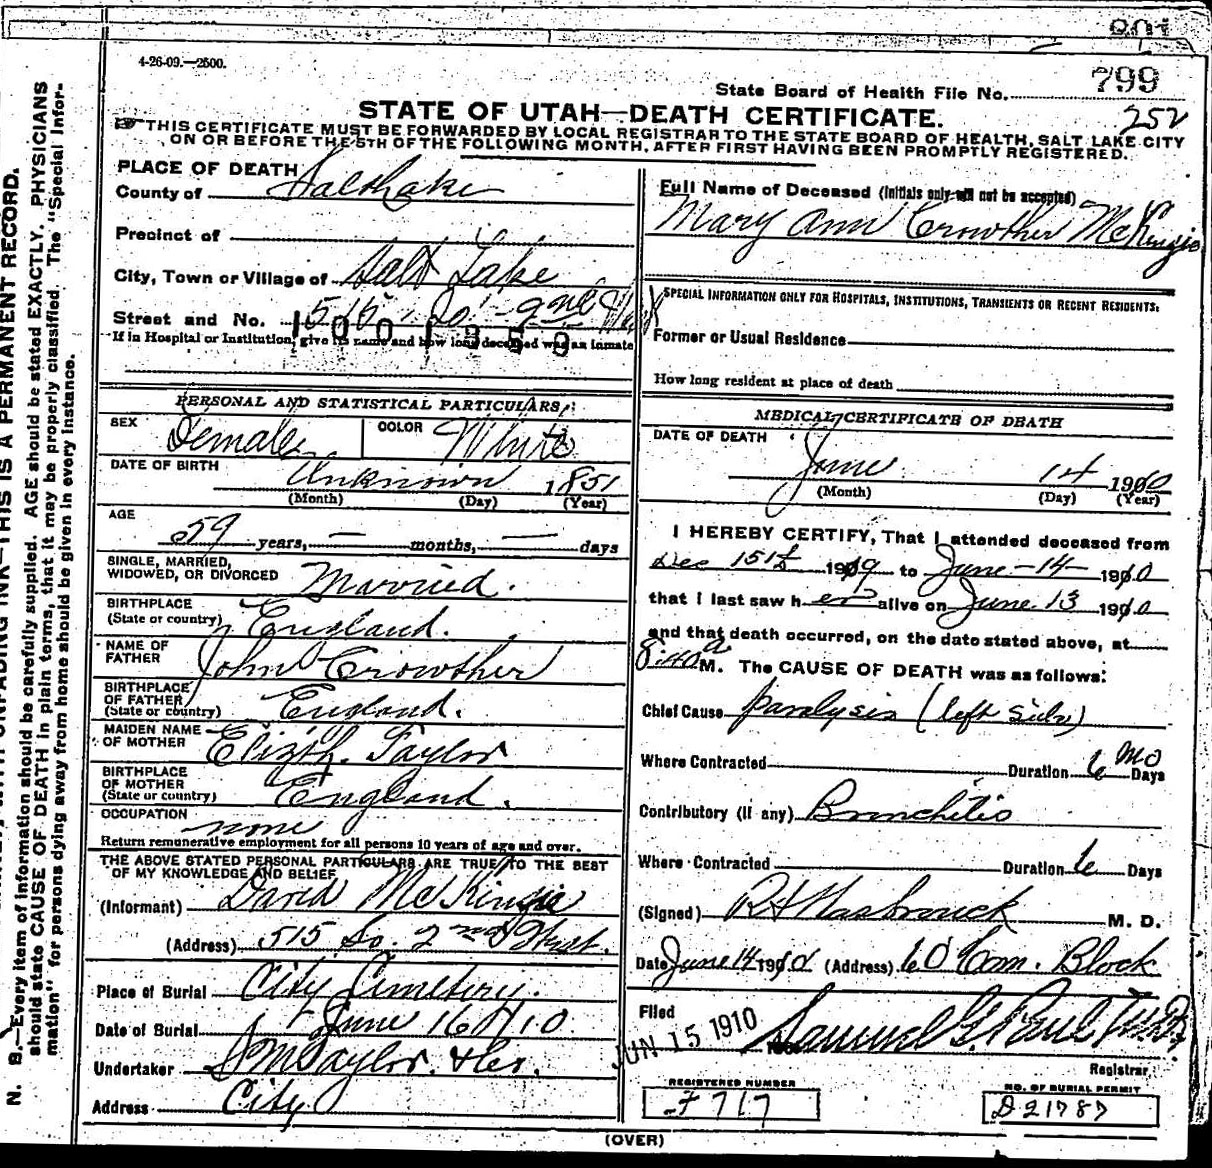 801
4-26-09.—2500.
State Board of Health File No. 799
252
STATE OF UTAH—DEATH CERTIFICATE.
THIS CERTIFICATE MUST BE FORWARDED BY LOCAL REGISTRAR TO THE STATE BOARD OF HEALTH, SALT LAKE CITY
ON OR BEFORE THE 5TH OF THE FOLLOWING MONTH, AFTER FIRST HAVING BEEN PROMPTLY REGISTERED.
PLACE OF DEATH
County of Salt Lake
Precinct of
City, Town or Village of Salt Lake
Street and No. 515 So. 2nd West
1001359
If in Hospital or Institution, give its name and how long deceased was an inmate
PERSONAL AND STATISTICAL PARTICULARS
SEX Female COLOR White
DATE OF BIRTH Unknown 1851
(Month) (Day) (Year)
AGE
59 years, — months, — days
SINGLE, MARRIED,
WIDOWED, OR DIVORCED Married.
BIRTHPLACE
(State or country) England.
NAME OF
FATHER John Crowther
BIRTHPLACE
OF FATHER
(State or country) England.
MAIDEN NAME
OF MOTHER Elizth. Taylor
BIRTHPLACE
OF MOTHER
(State or country) England.
OCCUPATION none
Return remunerative employment for all persons 10 years of age and over.
THE ABOVE STATED PERSONAL PARTICULARS ARE TRUE TO THE BEST
OF MY KNOWLEDGE AND BELIEF
(Informant) David McKinzie
(Address) 515 So. 2nd West.
Place of Burial City Cemetery.
Date of Burial June 16 1910
Undertaker S M Taylor & Co.
Address City
Full Name of Deceased (Initials only will not be accepted)
Mary Ann Crowther McKinzie
SPECIAL INFORMATION ONLY FOR HOSPITALS, INSTITUTIONS, TRANSIENTS OR RECENT RESIDENTS:
Former or Usual Residence
How long resident at place of death
MEDICAL CERTIFICATE OF DEATH
DATE OF DEATH
June 14 1910
(Month) (Day) (Year)
I HEREBY CERTIFY, That I attended deceased from
Dec 15th 1909 to June-14- 1910
that I last saw her alive on June 13 1910
and that death occurred, on the date stated above, at
8:40 a M. The CAUSE OF DEATH was as follows:
Chief Cause paralysis (left side)
Where Contracted Duration 6 mo Days
Contributory (if any) Bronchitis
Where Contracted Duration 6 Days
(Signed) R H Hasbrouck M. D.
Date June 14 1910 (Address) 60 Com. Block
Filed
JUN 15 1910 Samuel G. Paul M.D.
Registrar
REGISTERED NUMBER
F 717
NO. OF BURIAL PERMIT
D 21787
(OVER)
N. B.—Every item of information should be carefully supplied. AGE should be stated EXACTLY. PHYSICIANS
should state CAUSE OF DEATH in plain terms, that it may be properly classified. The "Special Infor-
mation" for persons dying away from home should be given in every instance.
UNFADING INK—THIS IS A PERMANENT RECORD.